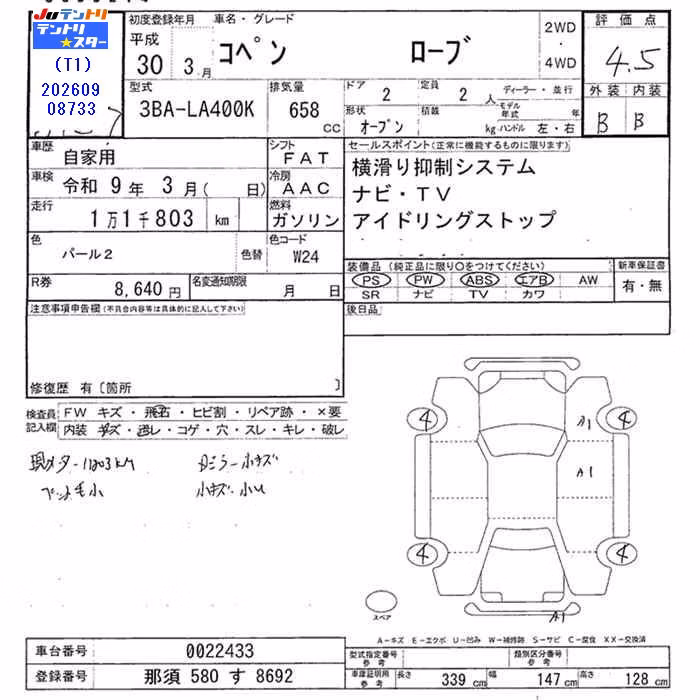 JUテントリ
テントリ★スター
(T1)
202609
08733
初度登録年月
平成
30 3 月
車名・グレード
コペン ローブ
2WD
・
4WD
評価点
4.5
型式
3BA-LA400K
排気量
658
CC
ドア
2
定員
2 人
ディーラー・並行
モデル年式 年
形状
オープン
積載
kg
ハンドル 左・右
外装 内装
B B
車歴
自家用
シフト
FAT
車検
令和 9 年 3 月 ( 日)
冷房
AAC
走行
1万1千803 km
燃料
ガソリン
色
パール2
色替
色コード
W24
R券
8,640 円
名変通知期限
月 日
セールスポイント(正常に機能するものに限ります)
横滑り抑制システム
ナビ・TV
アイドリングストップ
装備品(純正品に限り○をつけてください)
PS PW ABS エアB AW
SR ナビ TV カワ
新車保証書
有・無
注意事項申告欄(不具合内容等は具体的に記入して下さい)
後日品
修復歴 有〔箇所 〕
検査員記入欄
FW キズ・飛石・ヒビ割・リペア跡・×要
内装 キズ・汚レ・コゲ・穴・スレ・キレ・破レ
現メーター11803km
ペット毛小
小キズ・小凹
4 4
A1
A1
4 4
A1
スペア
A-キズ E-エクボ U-凹み W-補修跡 S-サビ C-腐食 XX-交換済
車台番号 0022433
登録番号 那須 580 す 8692
型式指定番号
参考
類別区分番号
参考
車庫証明用
参考
長さ 339 cm 幅 147 cm 高さ 128 cm